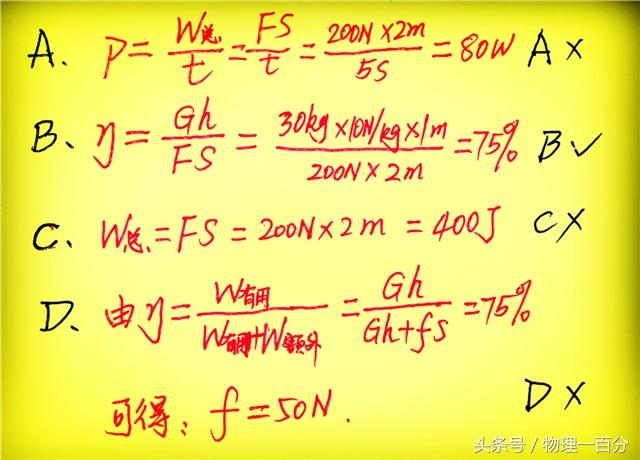 A. P = W总/t = FS/t = 200N×2m/5S = 80W A×
B、η = Gh/FS = 30kg×10N/kg×1m/200N×2m = 75% B✓
C. W总 = FS = 200N×2m = 400J C×
D、由η = W有用/W有用+W额外 = Gh/Gh+fs = 75%
可得: f = 50N. D×
头条号 / 物理一百分